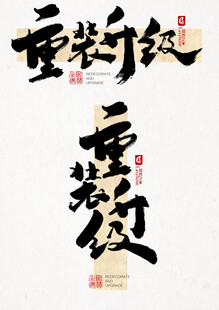 重装升级
REDECORATE
AND
UPGRADE
重
装
升
级
REDECORATE
AND
UPGRADE